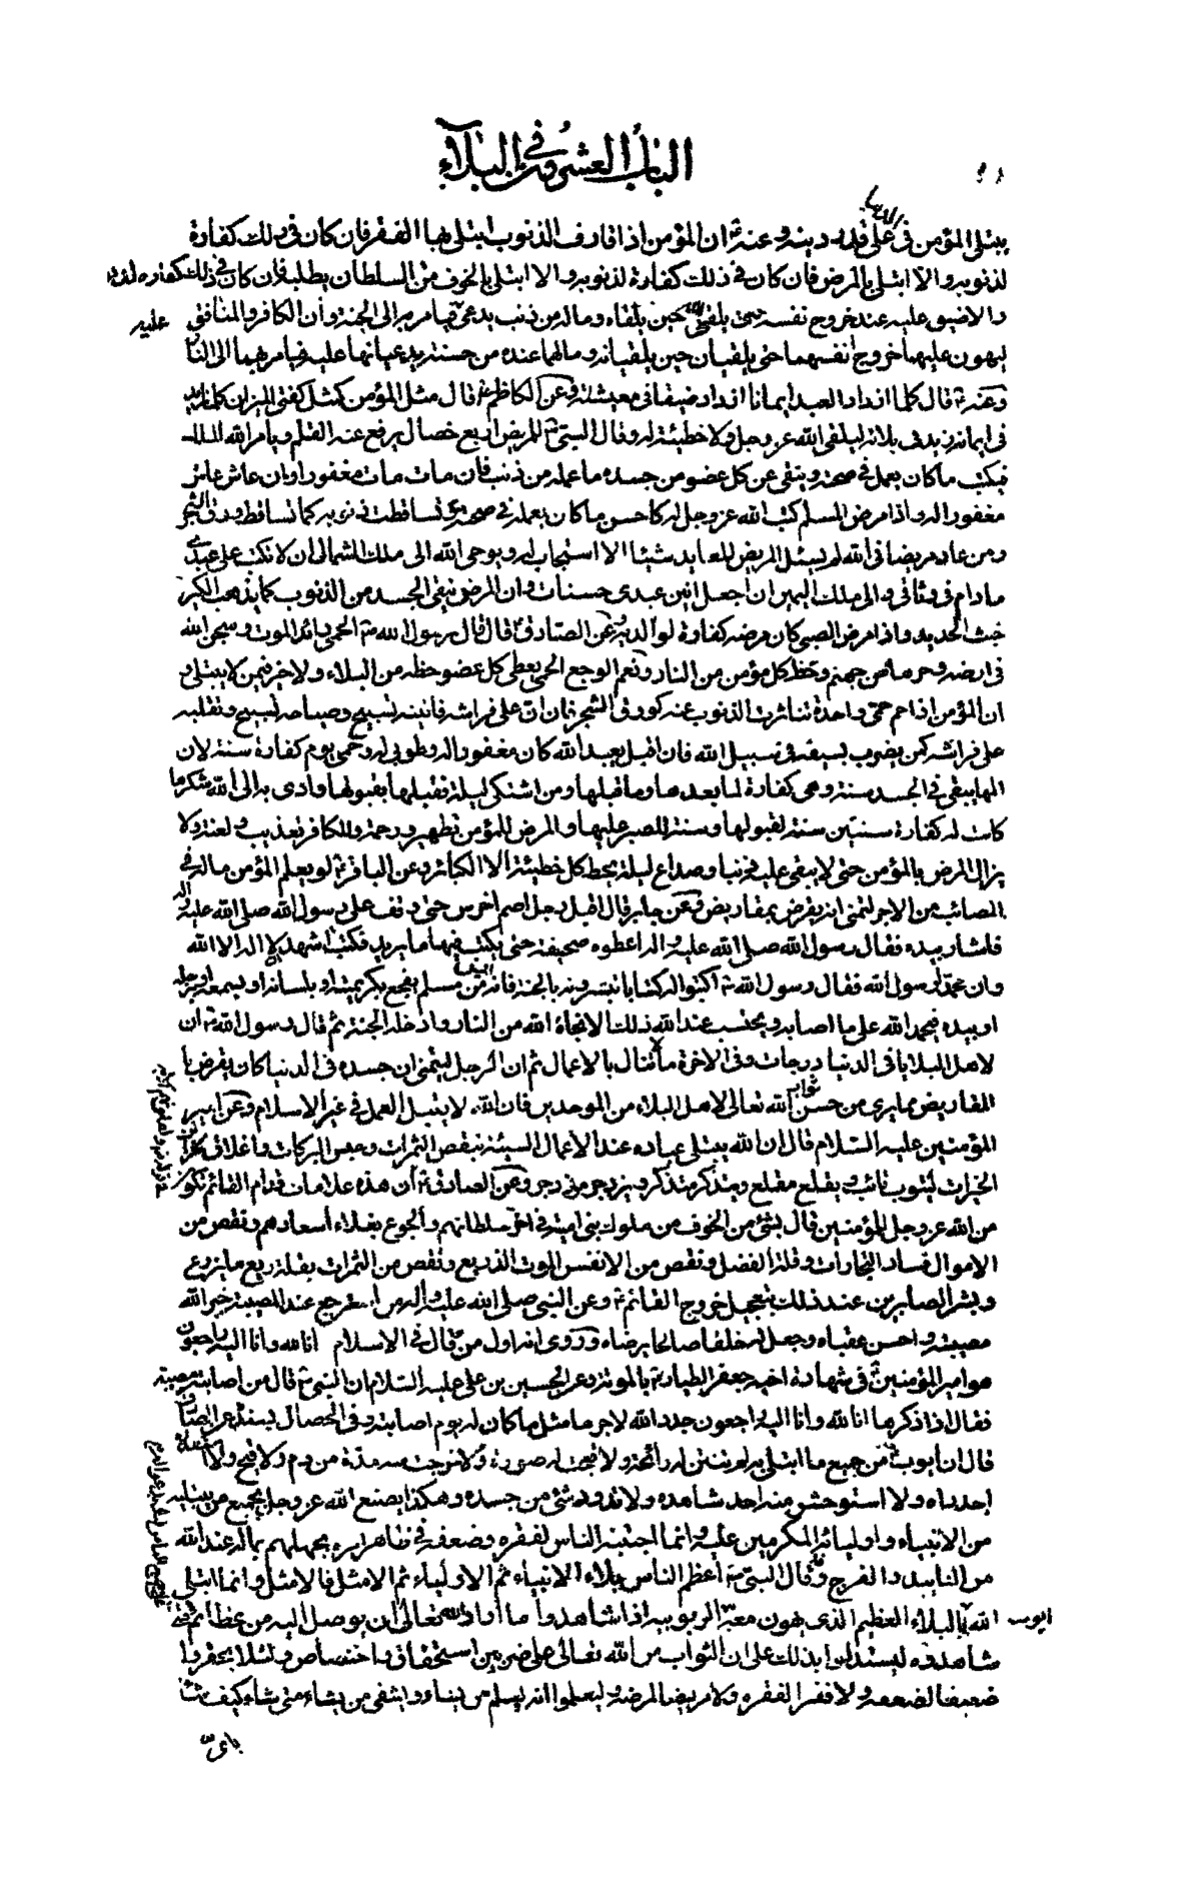 الباب العشرون في البلاء
يبتلى المؤمن في الدنيا على قدر دينه وعنه ع ان المؤمن اذا قارف الذنوب ابتلى بها الفقر فان كان في ذلك كفارة
لذنوبه والا ابتلى بالمرض فان كان في ذلك كفارة لذنوبه والا ابتلى بالخوف من السلطان يطلبه فان كان في ذلك كفاره لذنوبه
والا ضيق عليه عند خروج نفسه حتى يلقى الله حين يلقاه وماله من ذنب يدعى فيامر به الى الجنة وأن الكافر والمنافق
عليه
ليهون عليهما خروج انفسهما حتى يلقيان حين يلقيانه ومالهما عنده من حسنة يدعيانها عليه فيامر بهما الى النار
وعنه ع قال كلما ازداد العبد ايمانا ازداد ضيقا في معيشته وعن الكاظم ع قال مثل المؤمن كمثل كفتى الميزان كلما زيد
في ايمانه زيد في بلائه ليلقى الله عز وجل ولا خطيئة له وقال النبي ص للمريض اربع خصال يرفع عنه القلم ويامر الله الملك
فيكتب ما كان يعمل في صحته وينقى عن كل عضو من جسده ما عمله من ذنب فان مات مات مغفورا وان عاش عاش
مغفورا له واذا مرض المسلم كتب الله عز وجل له كاحسن ما كان يعمله في صحته وتساقطت ذنوبه كما تساقط ورق الشجر
ومن عاد مريضا في الله لم يسئل المريض للعايد شيئا الا استجاب له ويوحى الله الى ملك الشمال ان لا تكتب على عبدي
ما دام في وثاقي والى ملك اليمين ان اجعل انين عبدى حسنات وان المرض ينقى الجسد من الذنوب كما يذهب الكير
خبث الحديد واذا مرض الصبى كان مرضه كفارة لوالديه وعن الصادق ع قال قال رسول الله ص الحمى رائد الموت وسجن الله
في ارضه وحرها من جهنم وحظ كل مؤمن من النار ونعم الوجع الحمى يعطى كل عضو حظه من البلاء ولا خير فيمن لا يبتلى و
ان المؤمن اذا حم حمى واحدة تناثرت الذنوب عنه كورق الشجر فان ان على فراشه فانينه تسبيح وصياحه تسبيح وتقلبه
على فراشه كمن يضرب بسيفه في سبيل الله فان اقبل يعبد الله كان مغفورا له وطوبى له وحمى يوم كفارة سنة لان
المها يبقى في الجسد سنة وهي كفارة لما بعدها وما قبلها ومن اشتكى ليلة فقبلها بقبولها وادى الى الله شكرها
كانت له كفارة سنتين سنة لقبولها وسنة للصبر عليها والمرض للمؤمن تطهير ورحمة وللكافر تعذيب ولعنة ولا
يزال المرض بالمؤمن حتى لا يبقى عليه ذنبا وصداع ليلة يحط كل خطيئة الا الكبائر وعن الباقر ع لو يعلم المؤمن ماله في
المصائب من الاجر لتمنى انه يقرض بمقاريض وعن جابر قال اقبل رجل اصم اخرس حتى وقف على رسول الله صلى الله عليه واله
فاشار بيده فقال رسول الله صلى الله عليه واله اعطوه صحيفة حتى يكتب فيها ما يريد فكتب اشهد ان لا اله الا الله
وان محمدا رسول الله فقال رسول الله ص اكتبوا له كتابا تبشرونه بالجنة فانه ليس من مسلم يفجع بكريمته او بلسانه او بسمعه او برجله
او بيده فيحمد الله على ما اصابه ويحتسب عند الله ذلك الا نجاه الله من النار وادخله الجنة ثم قال رسول الله ص ان
لاهل البلايا في الدنيا درجات وفي الاخرة ما تنال بالاعمال ثم ان الرجل ليتمنى ان جسده في الدنيا كان يقرض با
لمقاريض مما يرى من حسن ثواب الله تعالى لاهل البلاء من الموحدين فان الله لا يقبل العمل في غير الاسلام وعن امير
المؤمنين عليه السلام قال ان الله يبتلى عباده عند الاعمال السيئة بنقص الثمرات وحبس البركات واغلاق خزائن
الخيرات ليتوب تائب ويقلع مقلع ويتذكر متذكر ويزدجر مزدجر وعن الصادق ع أن هذه علامات قدام القائم تكون
من الله عز وجل للمؤمنين قال بشئ من الخوف من ملوك بنى امية في اخر سلطانهم والجوع بغلاء أسعارهم ونقص من
الاموال فساد التجارات وقلة الفضل ونقص من الانفس الموت الذريع ونقص من الثمرات بقلة ريع ما يزرع
وبشر الصابرين عند ذلك بتعجيل خروج القائم ع وعن النبي صلى الله عليه واله من استرجع عند المصيبة جبر الله
مصيبته واحسن عقباه وجعل له خلفا صالحا يرضاه وروى انه اول من قال في الاسلام انا لله وانا اليه راجعون
هو امير المؤمنين ع في شهادة اخيه جعفر الطيار ع بالموتة وعن الحسين بن علي عليه السلام ان النبي ص قال من اصابته مصيبة
فقال اذا ذكرها انا لله وانا اليه راجعون جدد الله له اجرها مثل ما كان له يوم اصابته وفي الخصال بسنده عن الصادق
قال ان ايوب ع من جميع ما ابتلى به لم تنتن له رائحة ولا قبحت له صورة ولا خرجت منه مدة من دم ولا قيح ولا استقذره
احد راه ولا استوحش منه احد شاهده ولا تدود شئ من جسده وهكذا يصنع الله عز وجل بجميع من يبتليه
من الانبياء واوليائه المكرمين عليه وانما اجتنبه الناس لفقره وضعفه في ظاهر امره بجهلهم بماله عند الله
من التاييد والفرج وقال النبي ص أعظم الناس بلاء الانبياء ثم الاولياء ثم الامثل فالامثل وانما ابتلى
الله بالبلاء العظيم الذى يهون معه الربوبية اذا شاهدوا ما أراد الله تعالى ان يوصل اليه من عظائم نعمه
شاهدوه ليستدلوا بذلك على ان الثواب من الله تعالى على ضربين استحقاق واختصاص ولئلا يحقروا
ضعيفا لضعفه ولا فقيرا لفقره ولا مريضا لمرضه وليعلموا انه يسقم من يشاء ويشفى من يشاء متى يشاء كيف يشاء
باى